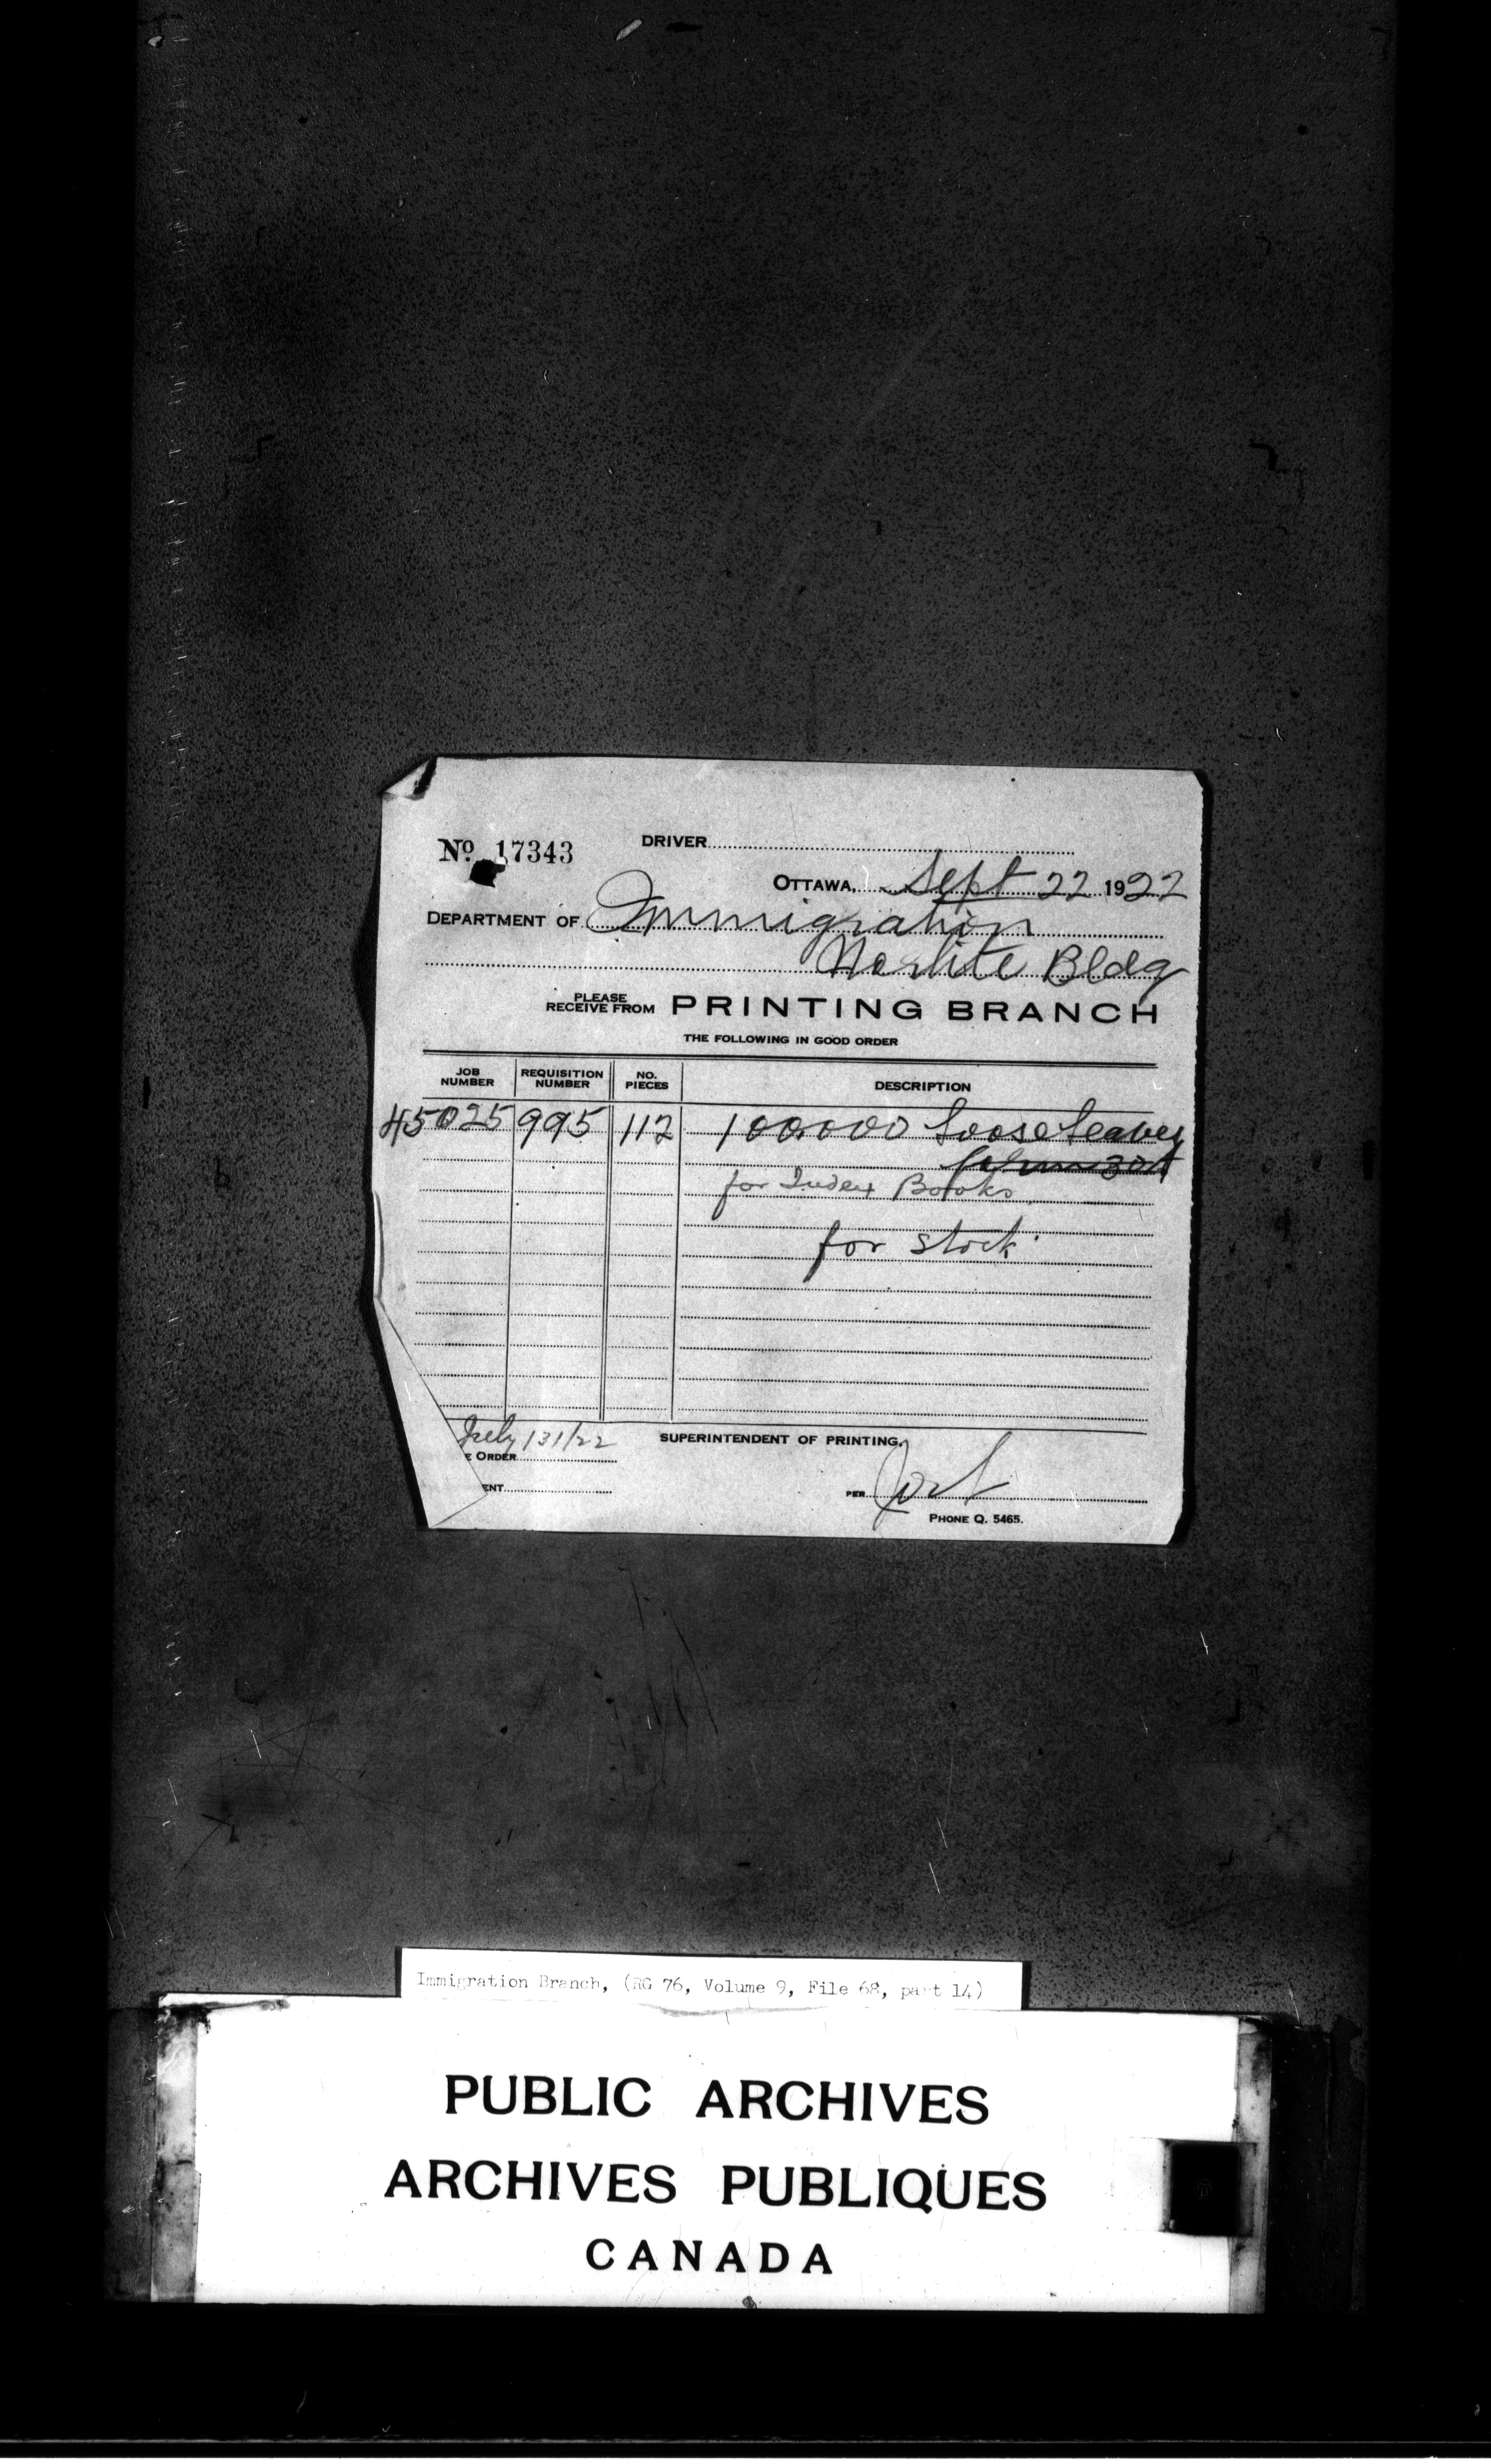 No 17343 DRIVER
OTTAWA, Sept 22 1922
DEPARTMENT OF Immigration
Norlite Bldg
PLEASE RECEIVE FROM PRINTING BRANCH
THE FOLLOWING IN GOOD ORDER
JOB NUMBER REQUISITION NUMBER NO. PIECES DESCRIPTION
45025 995 112 100,000 Loose Leaves
for Index Books
for stock
July 31/22 SUPERINTENDENT OF PRINTING,
E ORDER
ENT PER
PHONE Q. 5465.
Immigration Branch, (RG 76, Volume 9, File 68, part 14)
PUBLIC ARCHIVES
ARCHIVES PUBLIQUES
CANADA